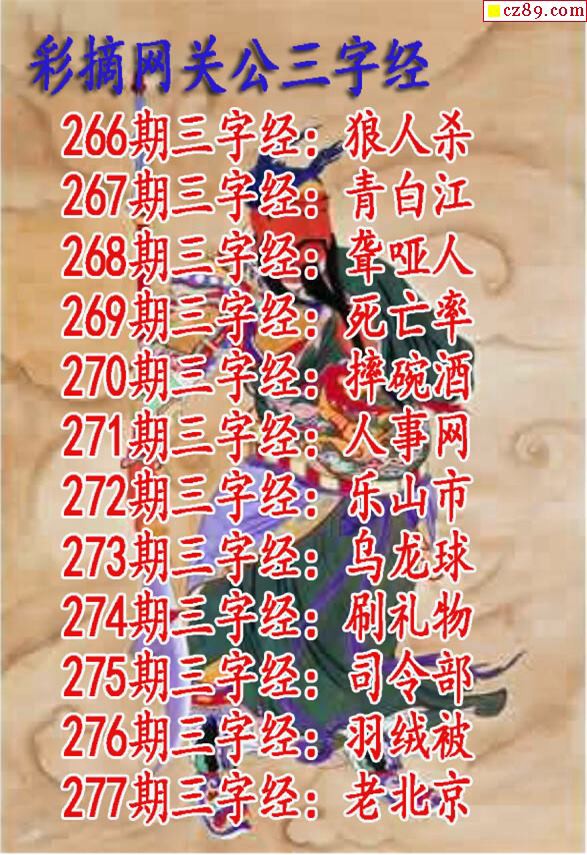 cz89.com
彩摘网关公三字经
266期三字经：狼人杀
267期三字经：青白江
268期三字经：聋哑人
269期三字经：死亡率
270期三字经：摔碗酒
271期三字经：人事网
272期三字经：乐山市
273期三字经：乌龙球
274期三字经：刷礼物
275期三字经：司令部
276期三字经：羽绒被
277期三字经：老北京